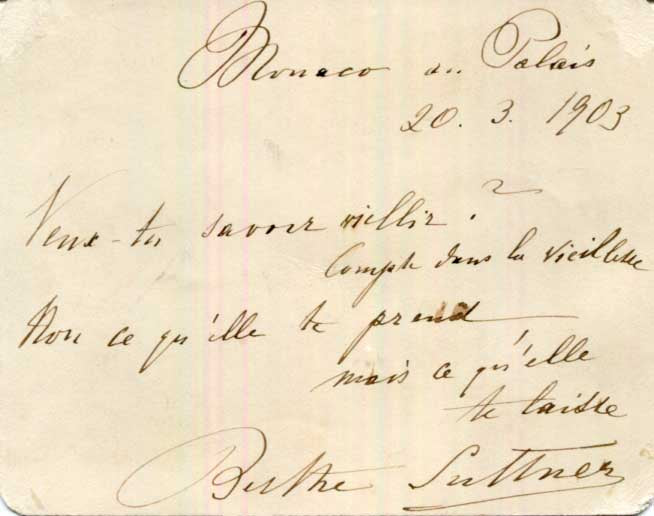 Monaco au Palais
20. 3. 1903
Veux-tu savoir vieillir ?
Compte dans la vieillesse
Non ce qu'elle te prend
mais ce qu'elle
te laisse
Berthe Suttner